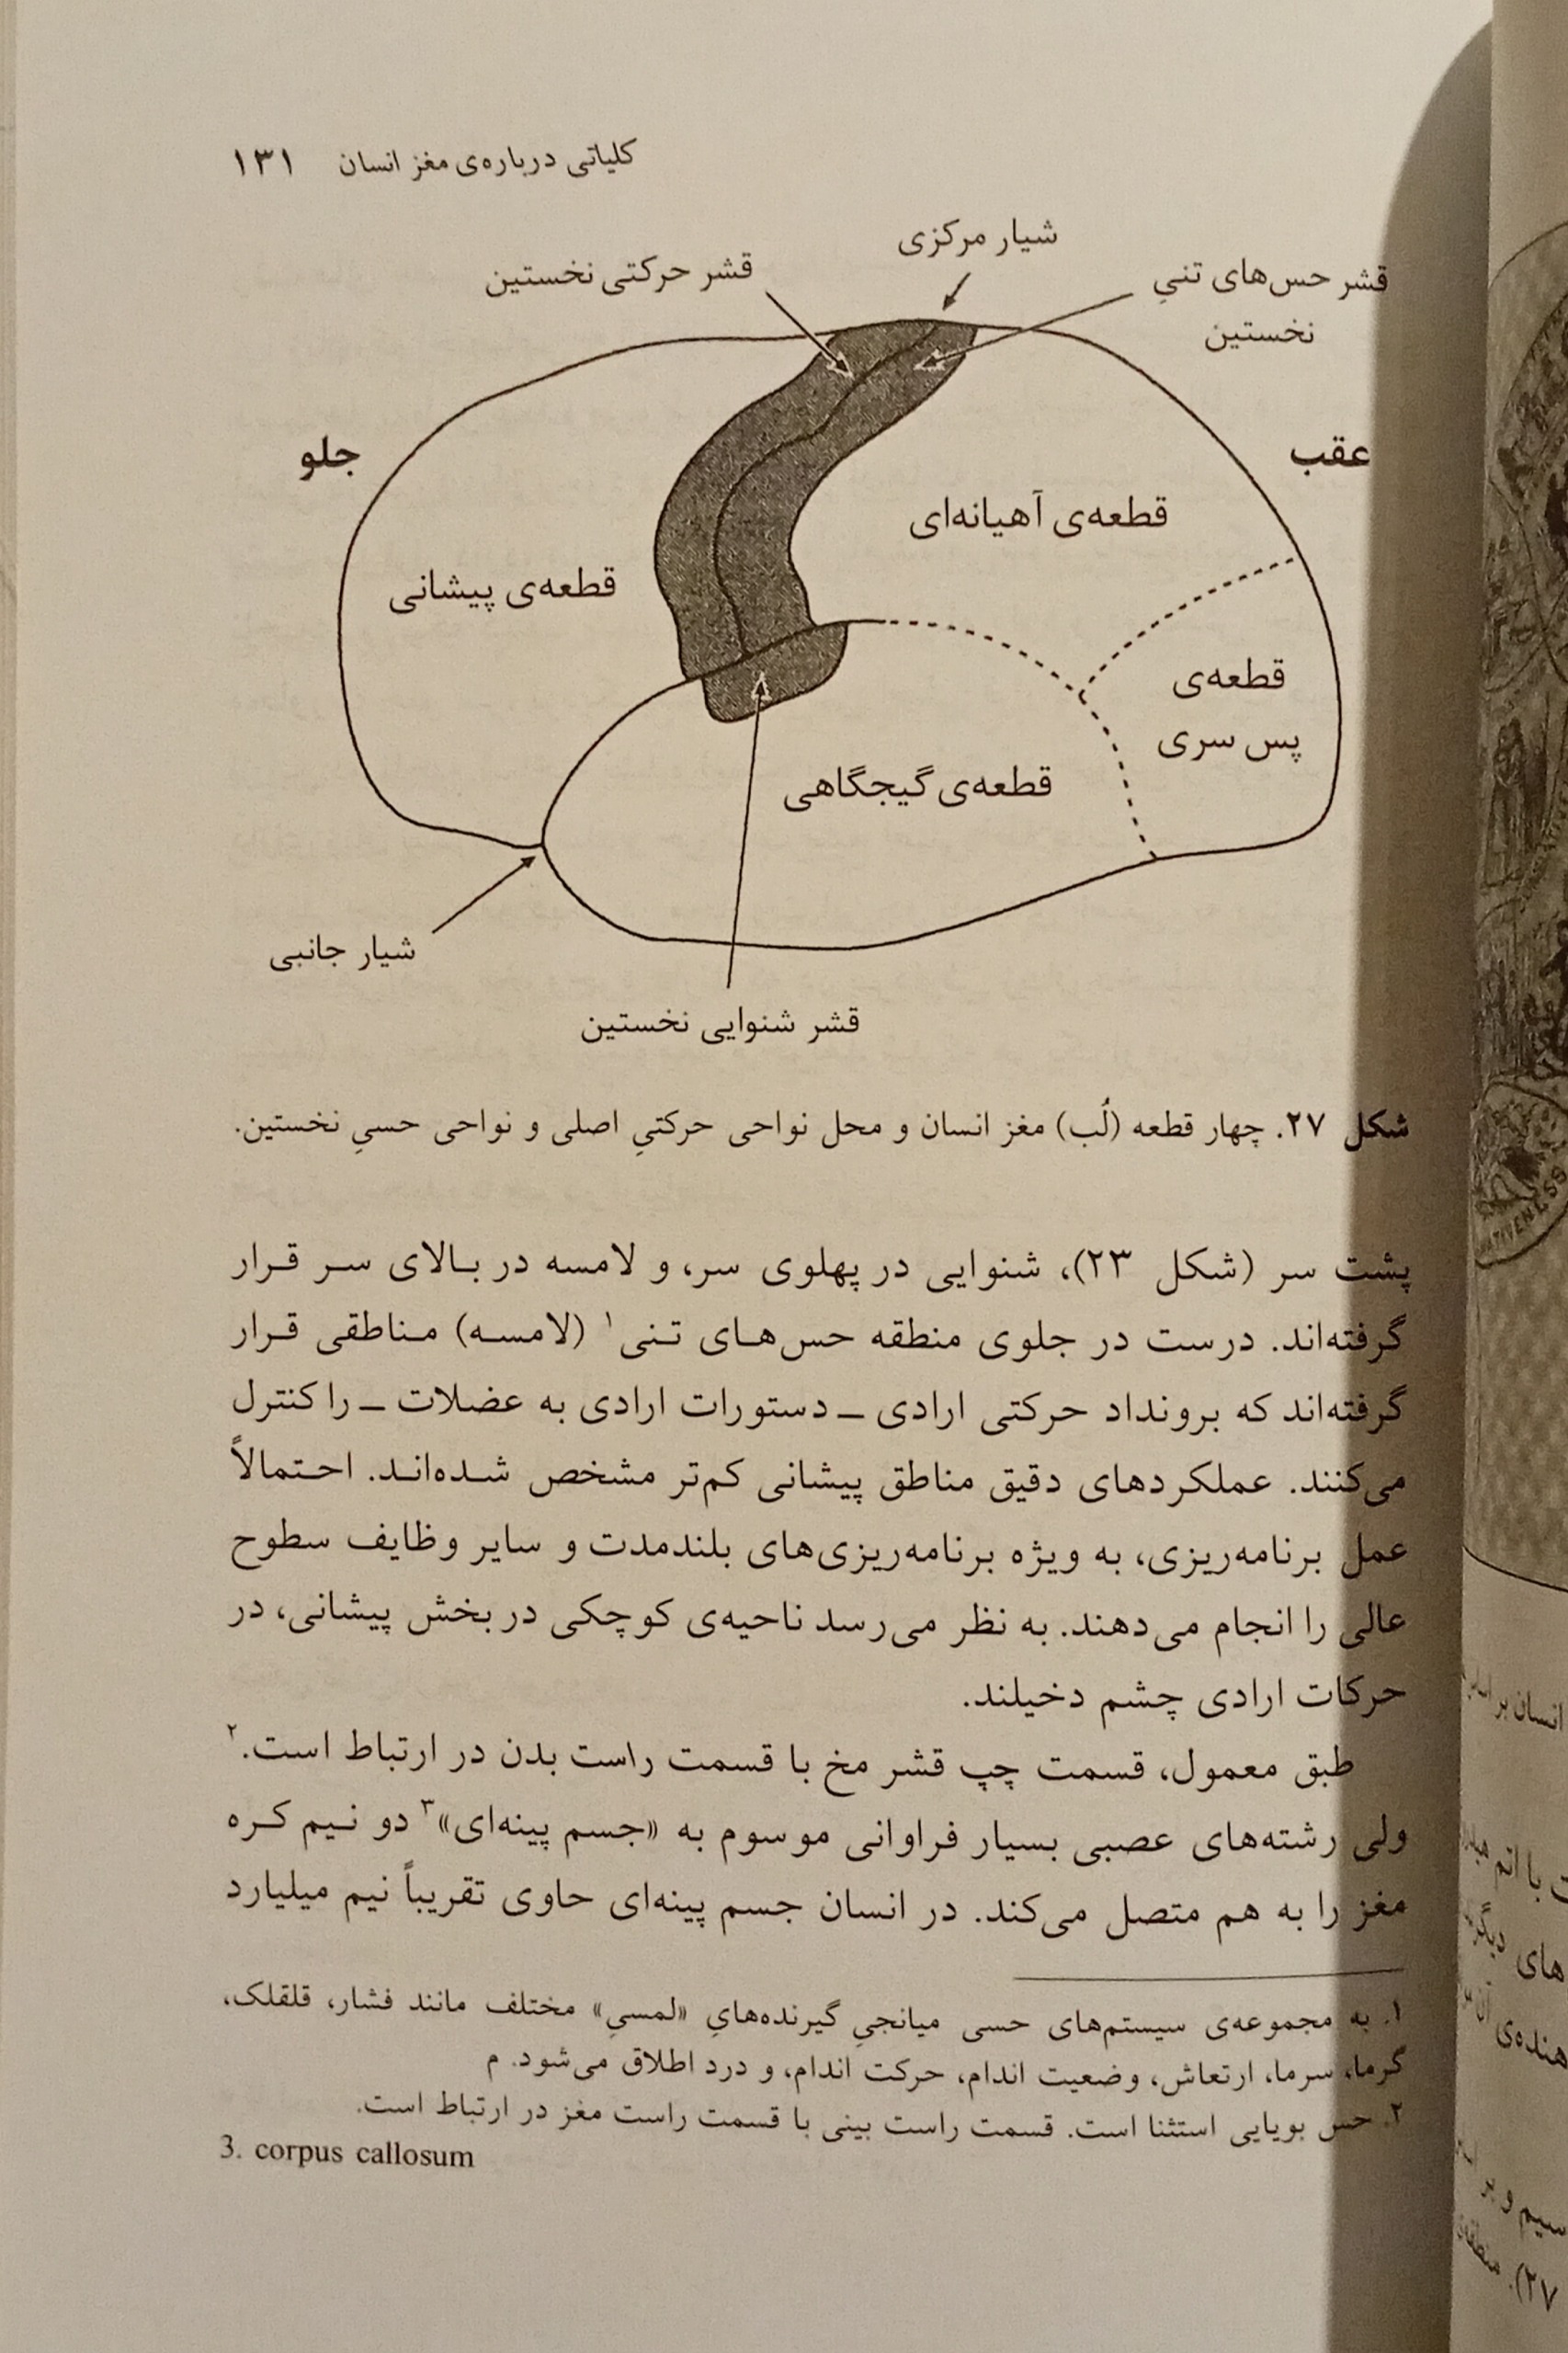 کلیاتی درباره‌ی مغز انسان ۱۳۱
شیار مرکزی
قشر حرکتی نخستین
قشر حس‌های تنیِ
نخستین
جلو
عقب
قطعه‌ی آهیانه‌ای
قطعه‌ی پیشانی
قطعه‌ی
پس سری
قطعه‌ی گیجگاهی
شیار جانبی
قشر شنوایی نخستین
شکل ۲۷. چهار قطعه (لُب) مغز انسان و محل نواحی حرکتیِ اصلی و نواحی حسیِ نخستین.
پشت سر (شکل ۲۳)، شنوایی در پهلوی سر، و لامسه در بالای سر قرار
گرفته‌اند. درست در جلوی منطقه حس‌های تنی۱ (لامسه) مناطقی قرار
گرفته‌اند که برونداد حرکتی ارادی ــ دستورات ارادی به عضلات ــ را کنترل
می‌کنند. عملکردهای دقیق مناطق پیشانی کم‌تر مشخص شده‌اند. احتمالاً
عمل برنامه‌ریزی، به ویژه برنامه‌ریزی‌های بلندمدت و سایر وظایف سطوح
عالی را انجام می‌دهند. به نظر می‌رسد ناحیه‌ی کوچکی در بخش پیشانی، در
حرکات ارادی چشم دخیلند.
طبق معمول، قسمت چپ قشر مخ با قسمت راست بدن در ارتباط است.۲
ولی رشته‌های عصبی بسیار فراوانی موسوم به «جسم پینه‌ای»۳ دو نیم کره
مغز را به هم متصل می‌کند. در انسان جسم پینه‌ای حاوی تقریباً نیم میلیارد
۱. به مجموعه‌ی سیستم‌های حسی میانجیِ گیرنده‌هایِ «لمسیِ» مختلف مانند فشار، قلقلک،
گرما، سرما، ارتعاش، وضعیت اندام، حرکت اندام، و درد اطلاق می‌شود. م
۲. حس بویایی استثنا است. قسمت راست بینی با قسمت راست مغز در ارتباط است.
3. corpus callosum